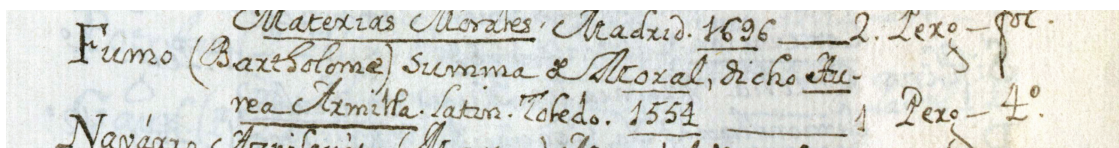 Materias Morales. Madrid. 1696 2. Perg– fol.
Fumo (Bartholomæ) Summa de Moral, dicho Au-
rea Armilla. latin. Toledo. 1554 1 Perg– 4º.
Navarro